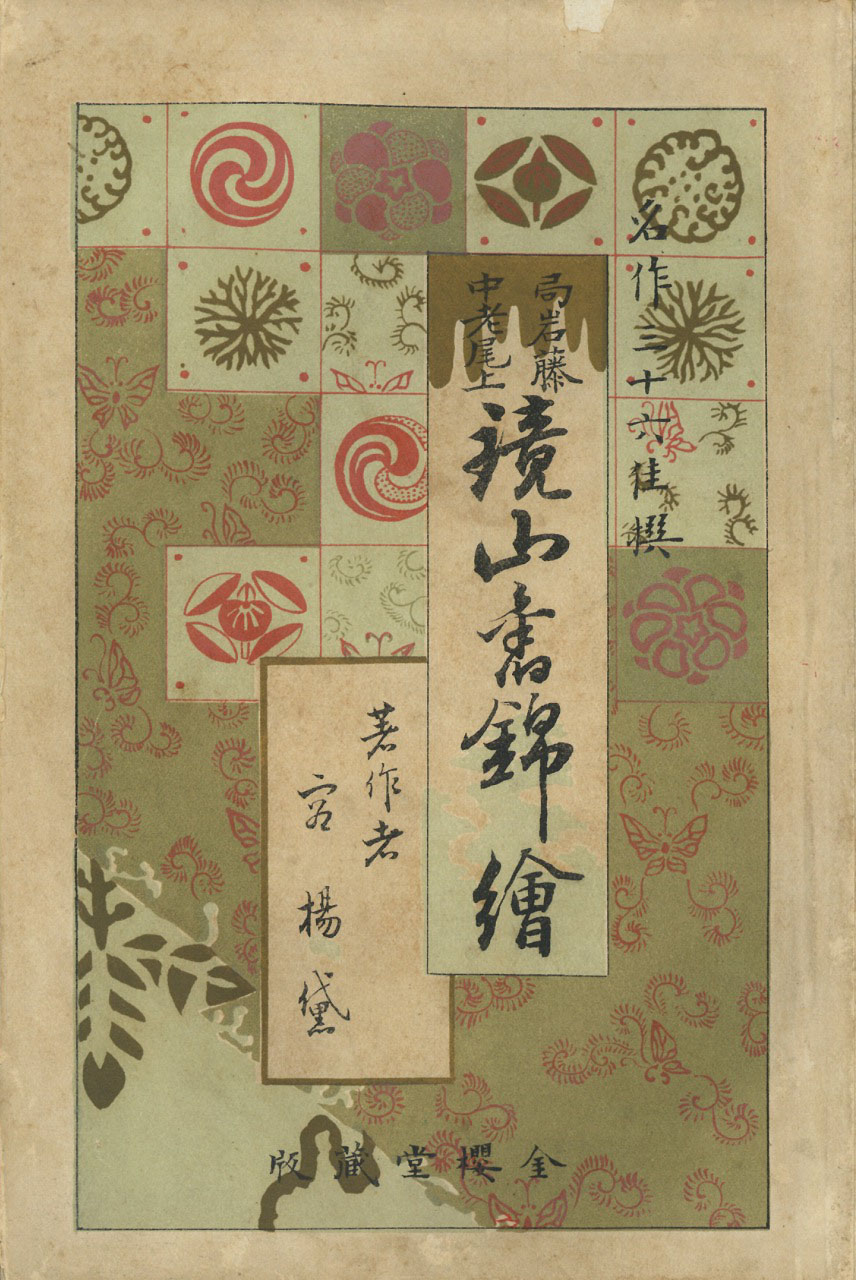 名作三十六佳撰
局岩藤
中老尾上
鏡山舊錦繪
著作者
容楊黛
金櫻堂藏版